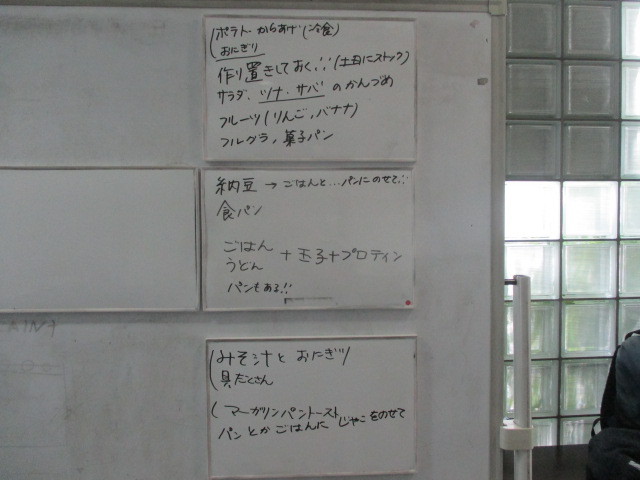 ポテト・からあげ(冷食)
おにぎり
作り置きしておく!!(土日にストック)
サラダ、ツナ・サバ のかんづめ
フルーツ(りんご、バナナ)
フルグラ、菓子パン
納豆 → ごはんと…パンにのせて!!
食パン
ごはん
うどん
+玉子+プロティン
パンもある!!
みそ汁と おにぎり
具だくさん
マーガリンパントースト
パンとか ごはんに じゃこをのせて